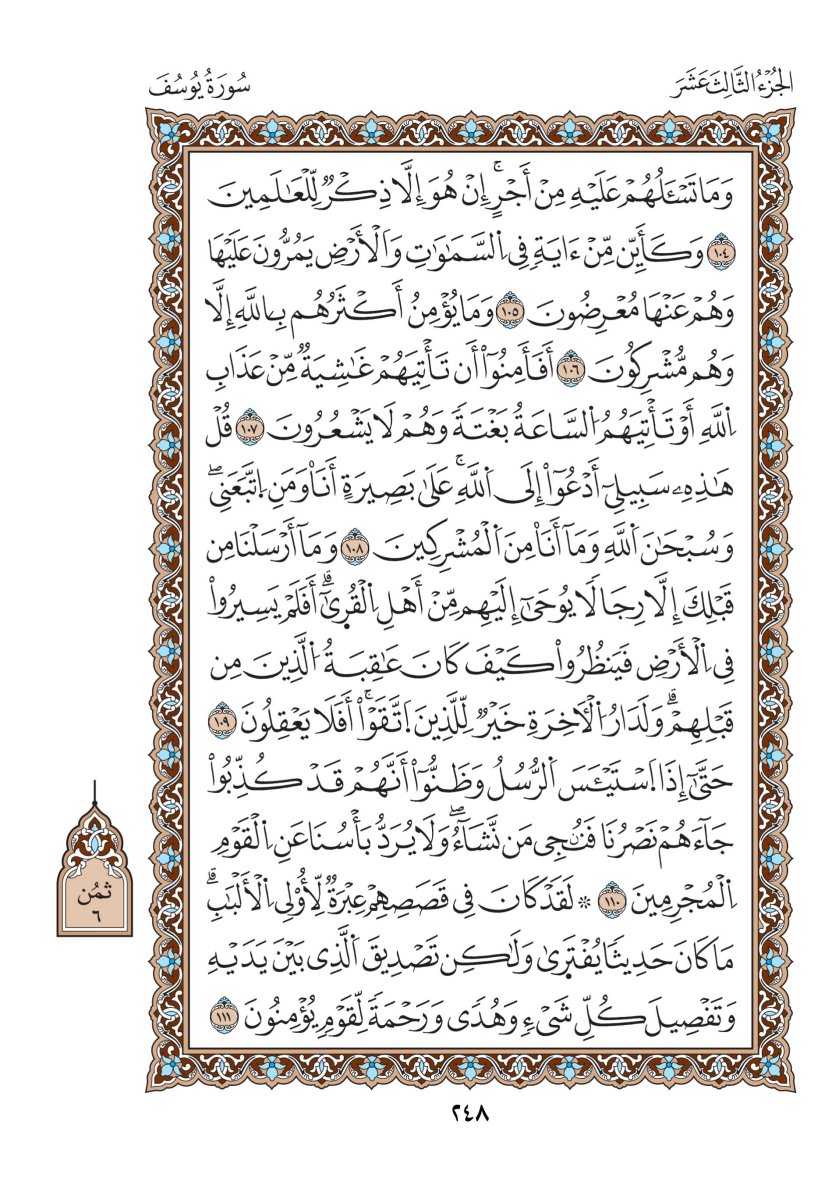 الجُزْءُ الثَّالِثَ عَشَرَ
سُورَةُ يُوسُفَ
وَمَا تَسْـَٔلُهُمْ عَلَيْهِ مِنْ أَجْرٍۚ إِنْ هُوَ إِلَّا ذِكْرٌ لِّلْعَٰلَمِينَ
١٠٤ وَكَأَيِّن مِّنْ ءَايَةٍ فِى اِ۬لسَّمَٰوَٰتِ وَالْأَرْضِ يَمُرُّونَ عَلَيْهَا
وَهُمْ عَنْهَا مُعْرِضُونَ ١٠٥ وَمَا يُؤْمِنُ أَكْثَرُهُم بِاللَّهِ إِلَّا
وَهُم مُّشْرِكُونَ ١٠٦ أَفَأَمِنُوٓاْ أَن تَأْتِيَهُمْ غَٰشِيَةٌ مِّنْ عَذَابِ
اِ۬للَّهِ أَوْ تَأْتِيَهُمُ اُ۬لسَّاعَةُ بَغْتَةً وَهُمْ لَا يَشْعُرُونَ ١٠٧ قُلْ
هَٰذِهِۦ سَبِيلِىٓ أَدْعُوٓاْ إِلَى اَ۬للَّهِۚ عَلَىٰ بَصِيرَةٍ أَنَا۠ وَمَنِ اِ۪تَّبَعَنِىۖ
وَسُبْحَٰنَ اَ۬للَّهِ وَمَآ أَنَا۠ مِنَ اَ۬لْمُشْرِكِينَ ١٠٨ وَمَآ أَرْسَلْنَا مِن
قَبْلِكَ إِلَّا رِجَالًا يُوحَىٰٓ إِلَيْهِم مِّنْ أَهْلِ اِ۬لْقُرَىٰٓۗ أَفَلَمْ يَسِيرُواْ
فِى اِ۬لْأَرْضِ فَيَنظُرُواْ كَيْفَ كَانَ عَٰقِبَةُ اُ۬لَّذِينَ مِن
قَبْلِهِمْۗ وَلَدَارُ اُ۬لْأٓخِرَةِ خَيْرٌ لِّلَّذِينَ اَ۪تَّقَوْاْۚ أَفَلَا يَعْقِلُونَ ١٠٩
حَتَّىٰٓ إِذَا اَ۪سْتَيْـَٔسَ اَ۬لرُّسُلُ وَظَنُّوٓاْ أَنَّهُمْ قَدْ كُذِّبُواْ
جَآءَهُمْ نَصْرُنَا فَنُۨجِى مَن نَّشَآءُۖ وَلَا يُرَدُّ بَأْسُنَا عَنِ اِ۬لْقَوْمِ
اِ۬لْمُجْرِمِينَ ١١٠ ۞ لَقَدْ كَانَ فِى قَصَصِهِمْ عِبْرَةٌ لِّأُوْلِى اِ۬لْأَلْبَٰبِۗ
مَا كَانَ حَدِيثًا يُفْتَرَىٰ وَلَٰكِن تَصْدِيقَ اَ۬لَّذِى بَيْنَ يَدَيْهِ
وَتَفْصِيلَ كُلِّ شَىْءٍ وَهُدًى وَرَحْمَةً لِّقَوْمٍ يُؤْمِنُونَ ١١١
ثمُن
٦
٢٤٨